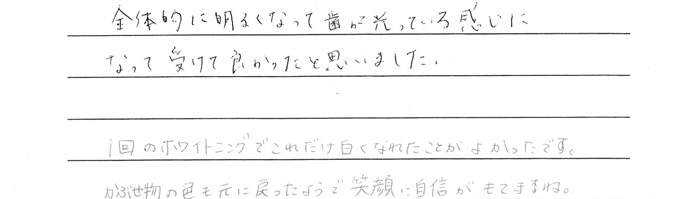 全体的に明るくなって歯が光っている感じに
なって受けて良かったと思いました。
1回のホワイトニングでこれだけ白くなれたことがよかったです。
かぶせ物の色も元に戻ったようで笑顔に自信がもてますね。